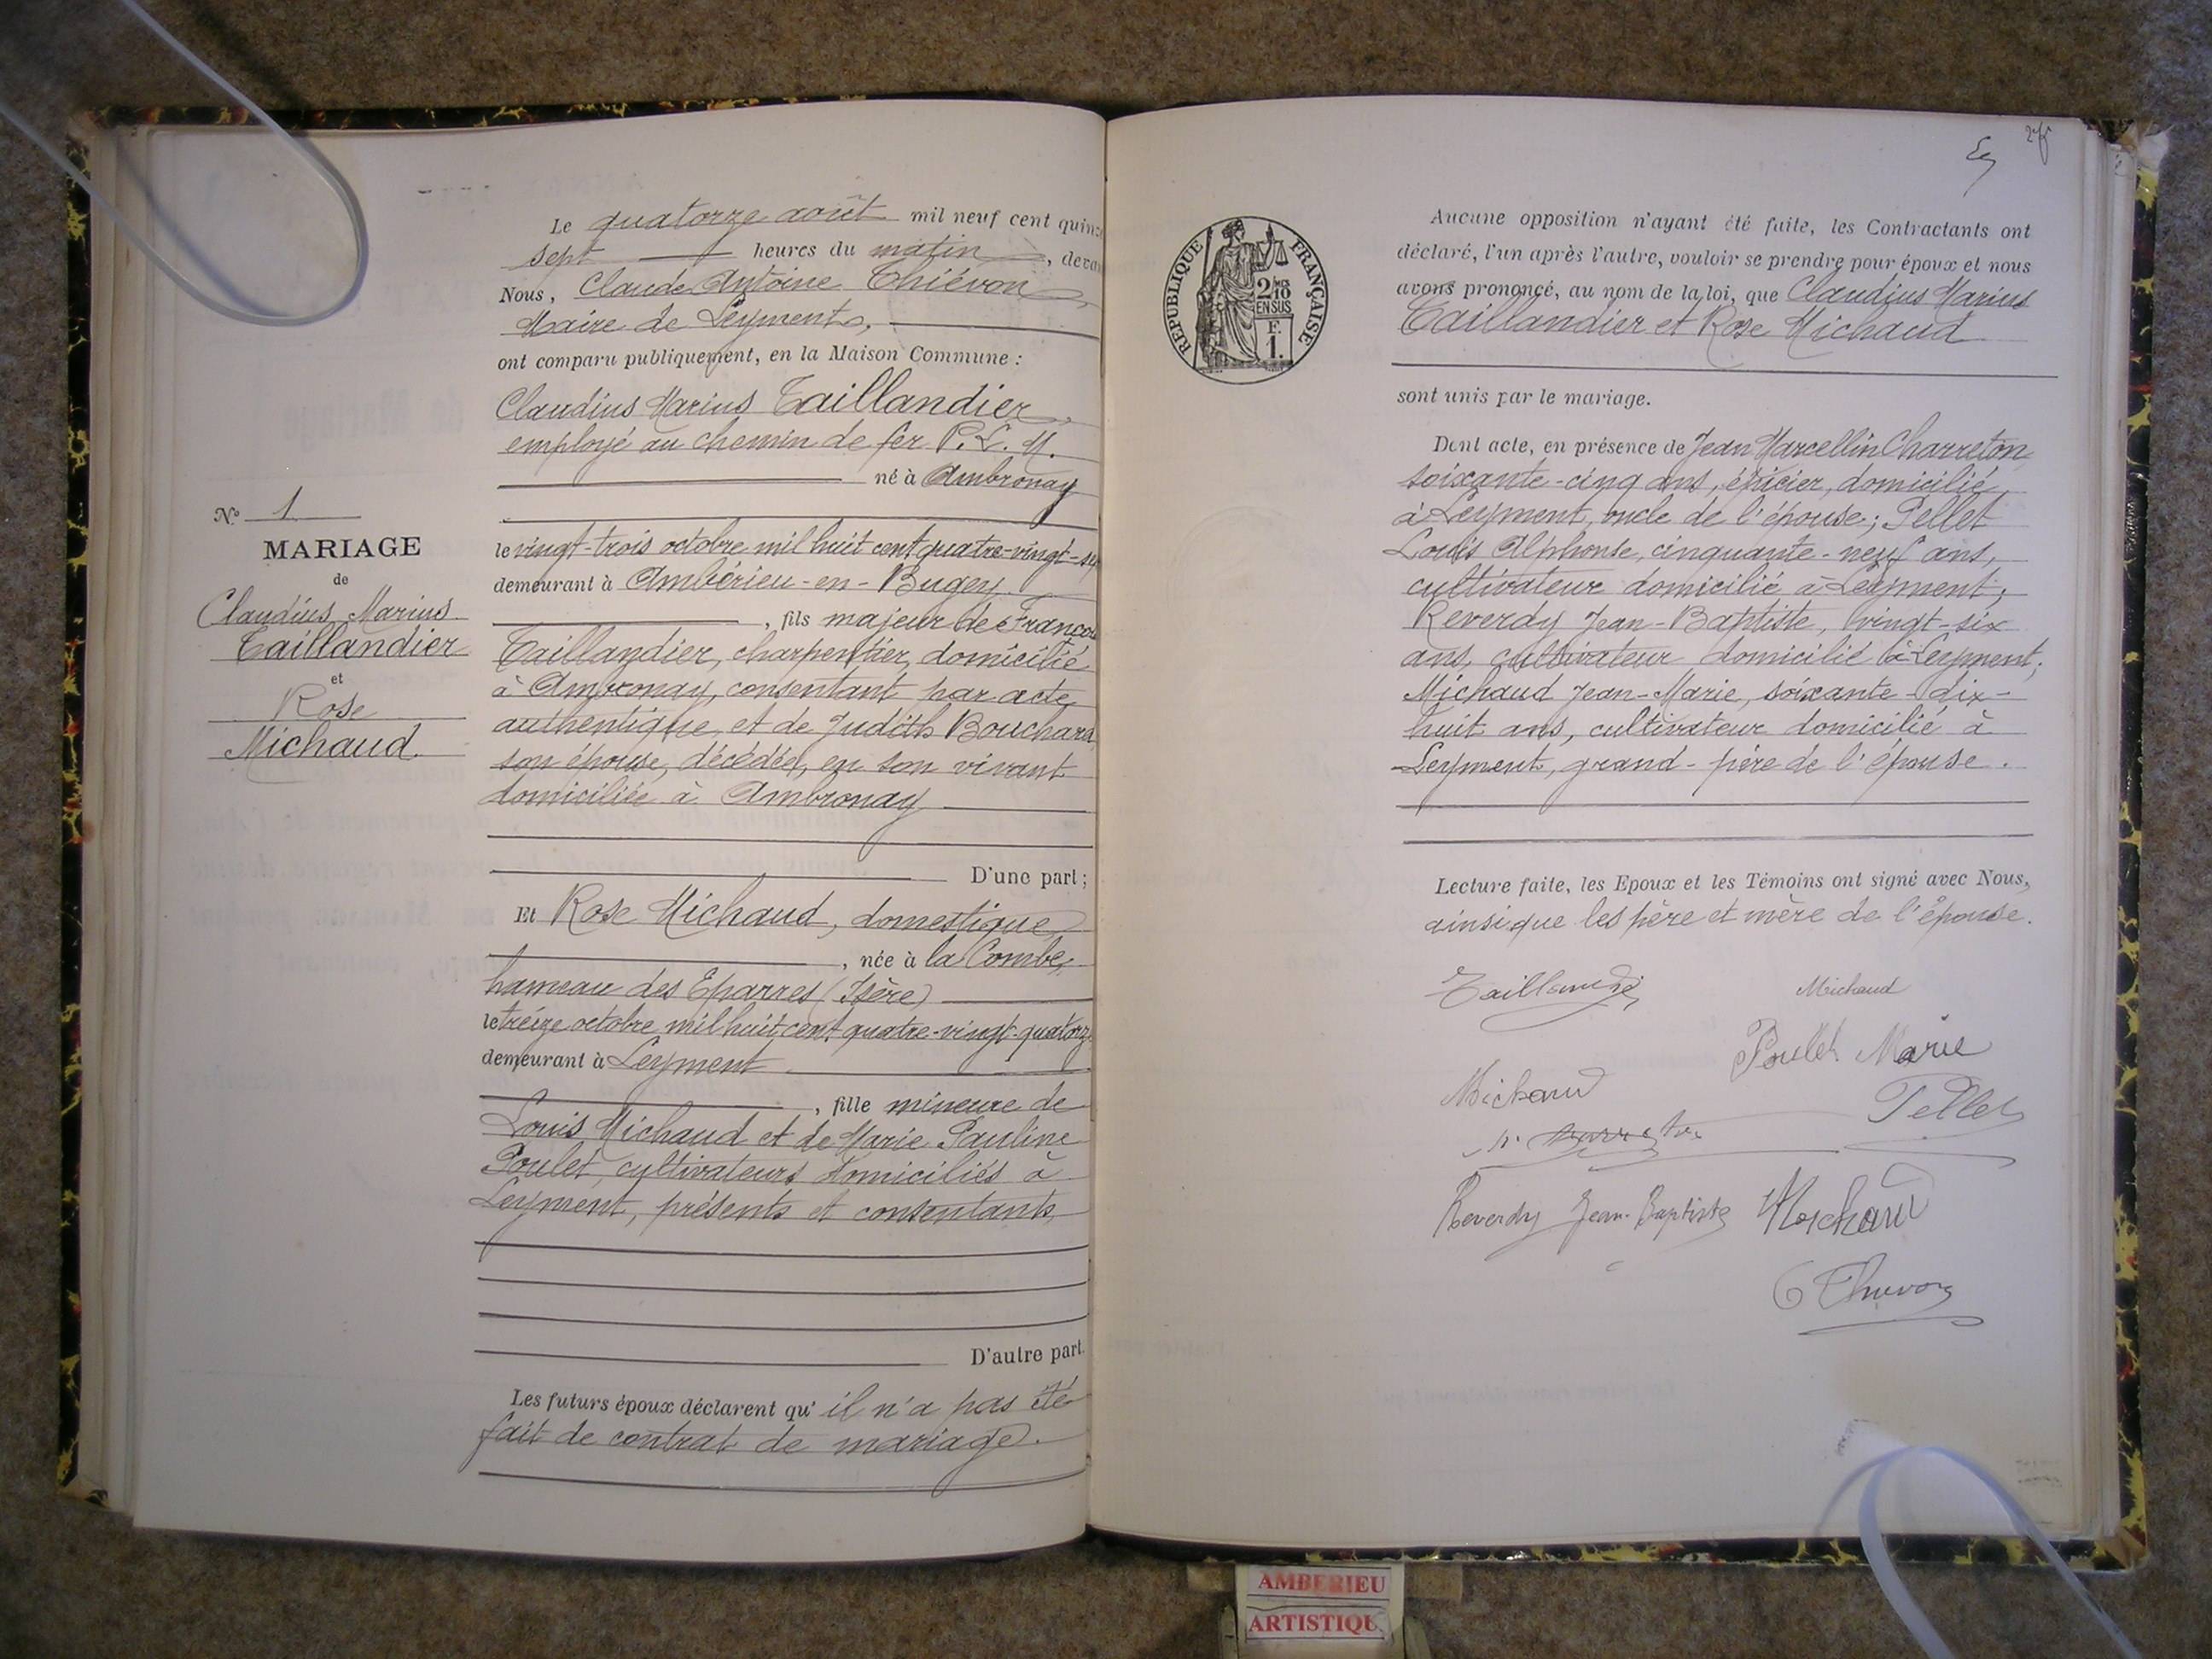 Le quatorze août mil neuf cent quinze
sept heures du matin, deva
Nous, Claude Antoine Thiévon
Maire de Leyment,
ont comparu publiquement, en la Maison Commune :
Claudius Marius Taillandier,
employé au chemin de fer P. L. M.
né à Ambronay
le vingt-trois octobre mil huit cent quatre-vingt-
demeurant à Ambérieu-en-Bugey
, fils majeur de Françou
Taillandier, charpentier, domicilié
à Ambronay, consentant par acte
authentique, et de Judith Bouchard
son épouse, décédée, en son vivant
domiciliée à Ambronay
D'une part ;
Et Rose Michaud, domestique
, née à la Combe,
hameau des Eparres (Isère)
le treize octobre mil huit cent quatre-vingt-quatorz
demeurant à Leyment
, fille mineure de
Louis Michaud et de Marie Pauline
Poulet, cultivateurs domiciliés à
Leyment, présents et consentants
D'autre part.
Les futurs époux déclarent qu' il n'a pas été
fait de contrat de mariage.
N° 1
MARIAGE
de
Claudius Marius
Taillandier
et
Rose
Michaud.
RÉPUBLIQUE FRANÇAISE
2/10 EN SUS
F. 1.
Aucune opposition n'ayant été faite, les Contractants ont
déclaré, l'un après l'autre, vouloir se prendre pour époux et nous
avons prononcé, au nom de la loi, que Claudius Marius
Taillandier et Rose Michaud
sont unis par le mariage.
Dont acte, en présence de Jean Marcellin Charreton
soixante-cinq ans, épicier, domicilié
à Leyment, oncle de l'épouse ; Pellet
Louis Alphonse, cinquante-neuf ans,
cultivateur domicilié à Leyment ;
Reverdy Jean-Baptiste, vingt-six
ans, cultivateur domicilié à Leyment ;
Michaud Jean-Marie, soixante-dix-
huit ans, cultivateur domicilié à
Leyment, grand-père de l'épouse.
Lecture faite, les Epoux et les Témoins ont signé avec Nous,
ainsi que les père et mère de l'épouse.
Michaud
Poulet Marie
Michaud
Pellet
Reverdy Jean-Baptiste Michaud
AMBERIEU
ARTISTIQU